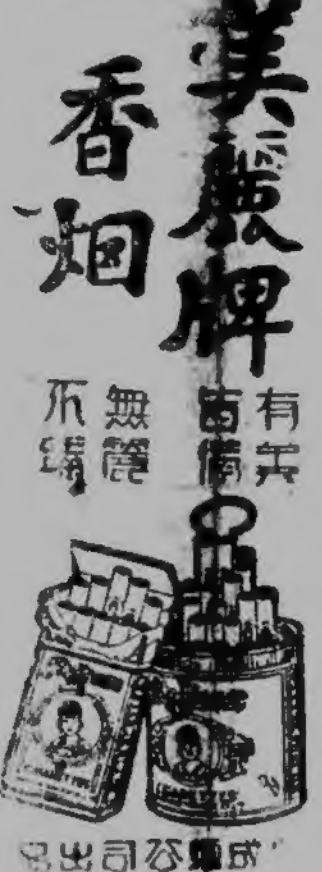 美麗牌
香烟
有美
皆備
無麗
不臻
公司出品